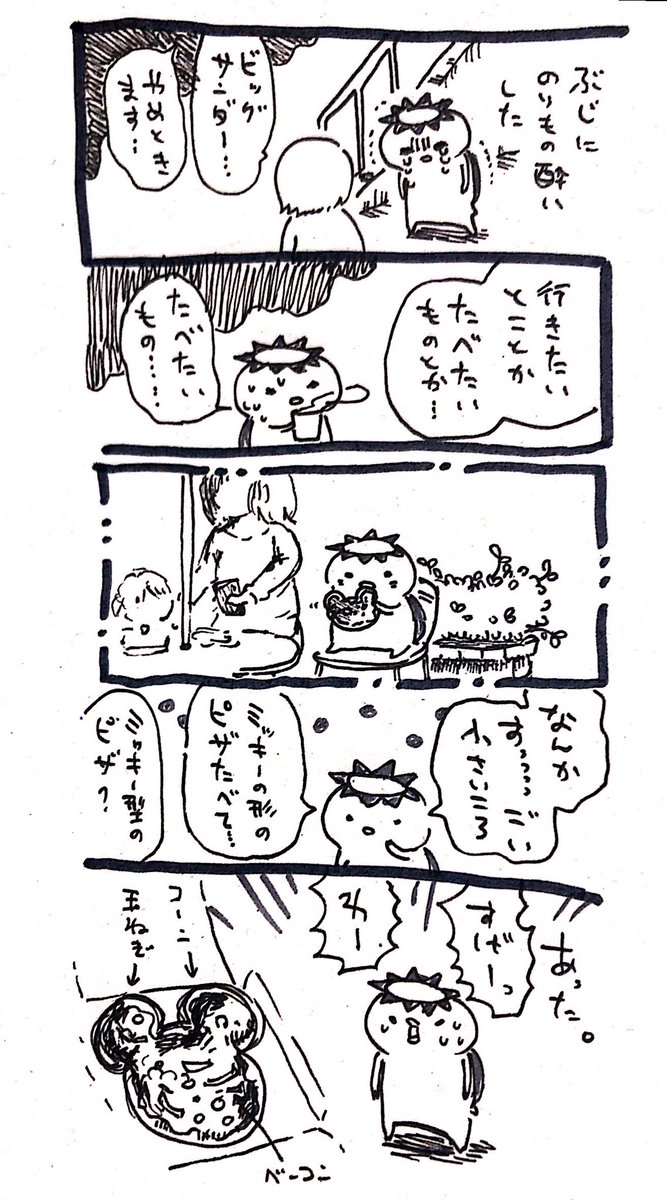 ぶじに
のりもの酔い
した
ビッグ
サンダー…
やめとき
ます…
行きたい
とことか
たべたい
ものとか…
たべたい
もの……
なんか
すっっっごい
小さいころ
ミッキーの形の
ピザたべて…
ミッキー型の
ピザ?
あった。
すげーっ
わー
コーン
玉ねぎ
ベーコン